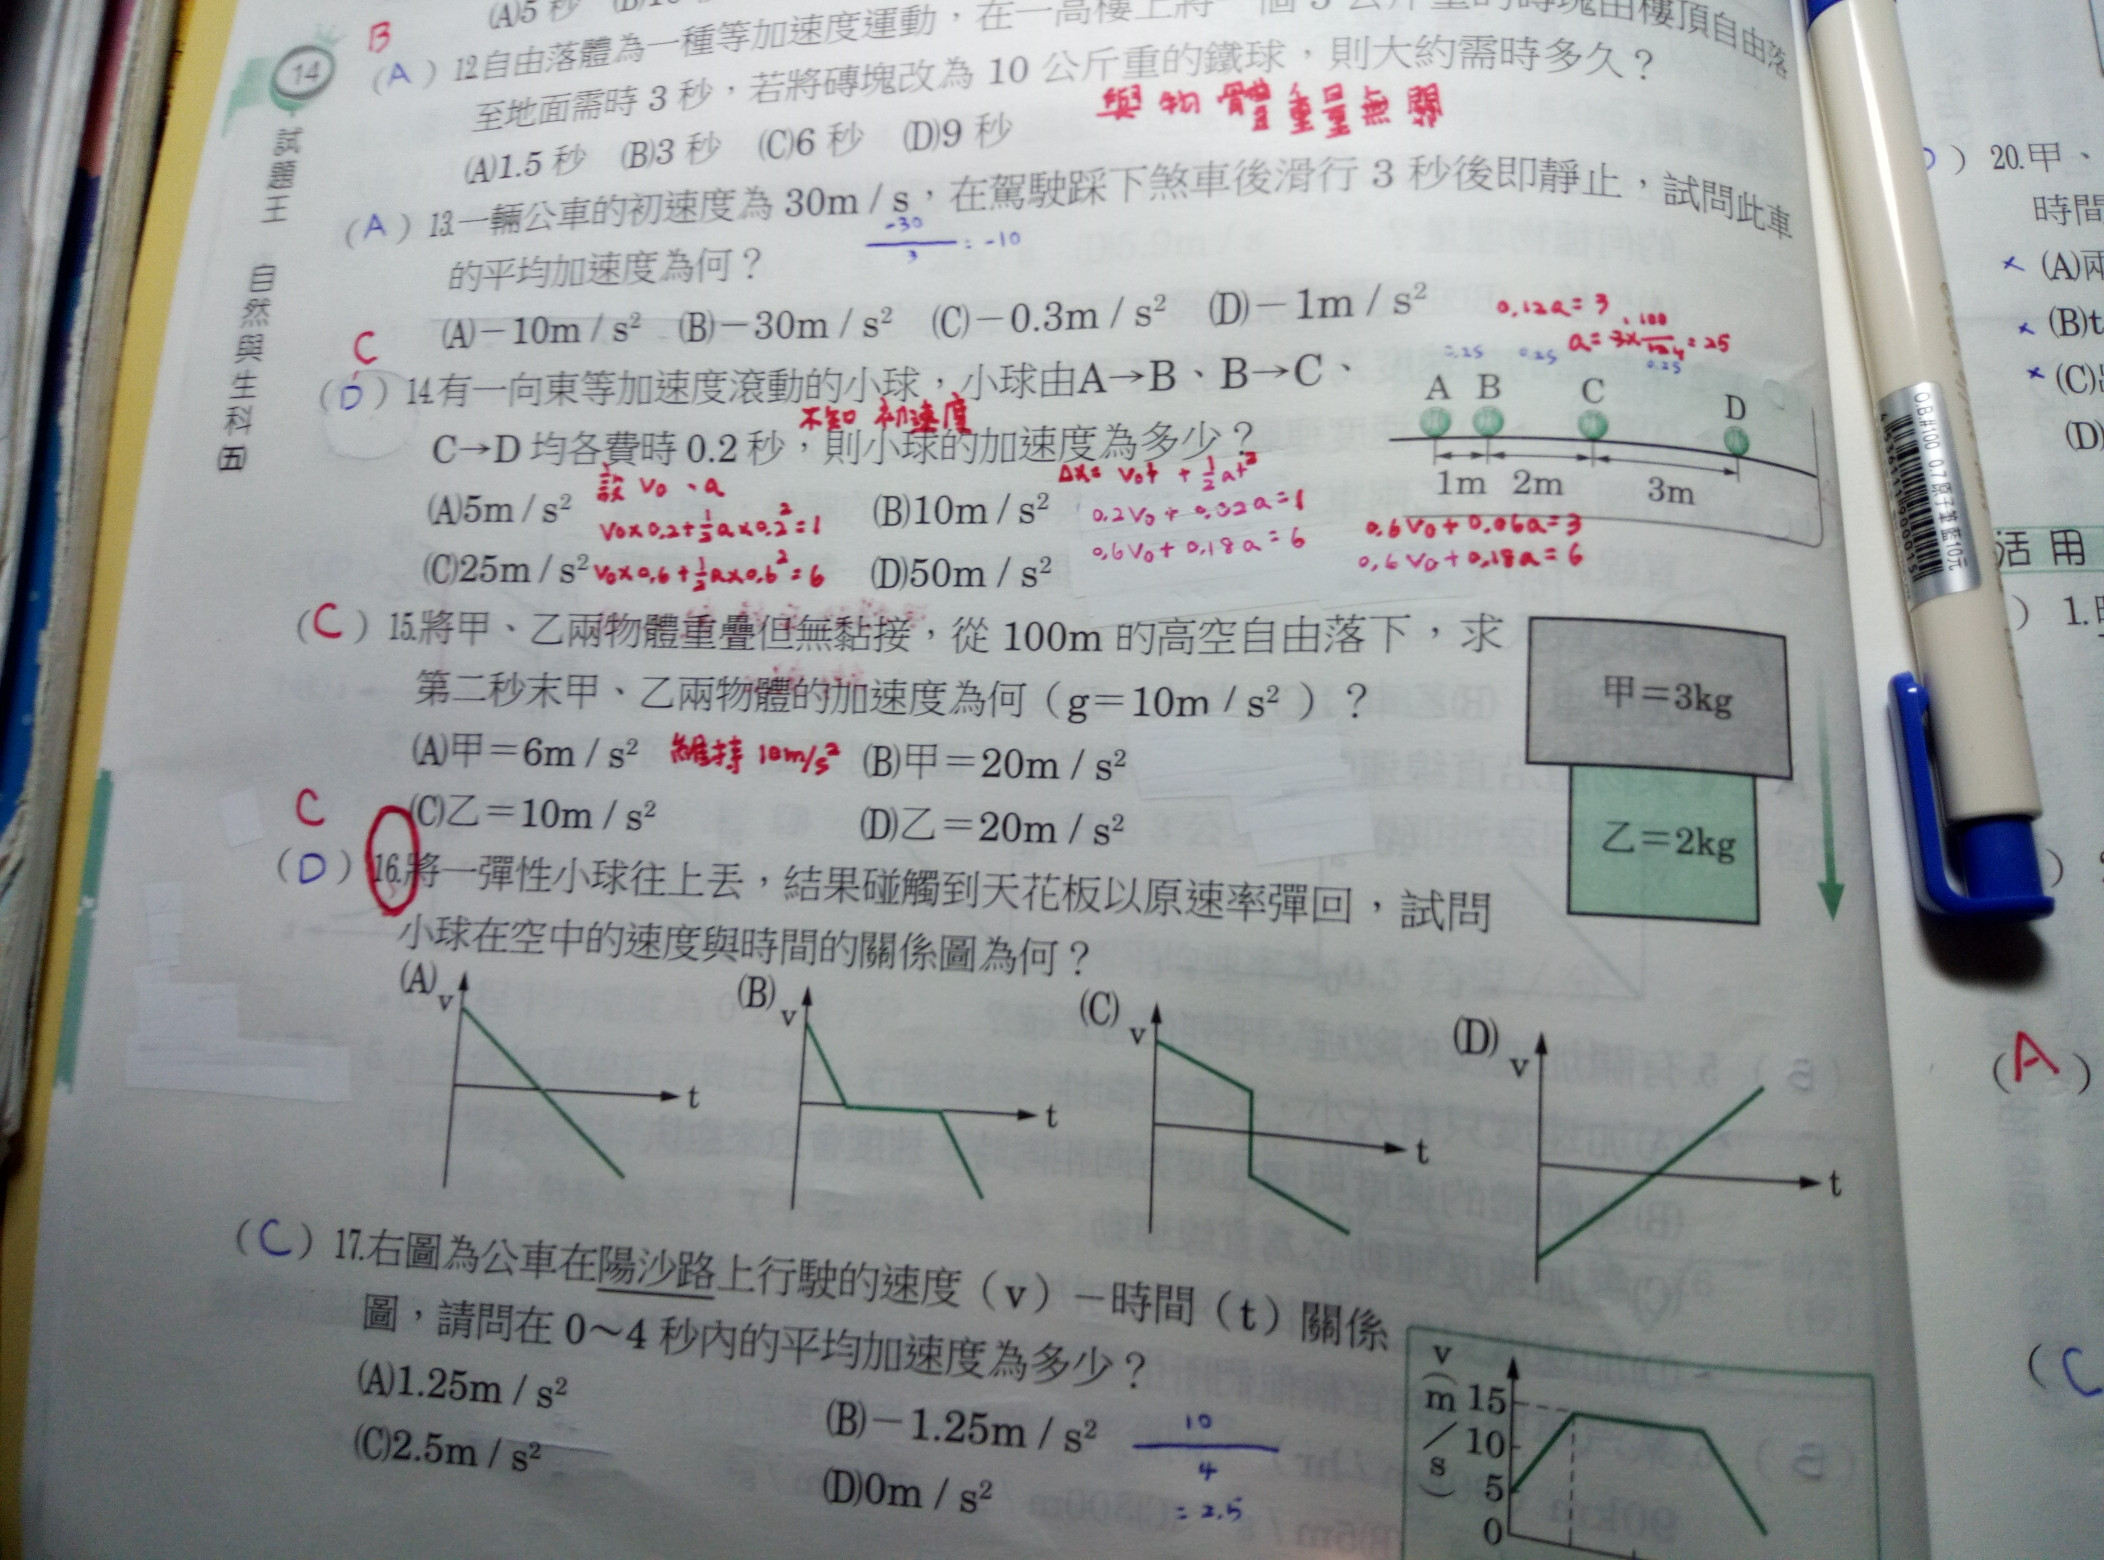 (A)5秒
B
(A) 12.自由落體為一種等加速度運動，在一高樓上將一個5公斤重的磚塊由樓頂自由落
至地面需時3秒，若將磚塊改為10公斤重的鐵球，則大約需時多久？
與物體重量無關
(A)1.5秒 (B)3秒 (C)6秒 (D)9秒
(A) 13.一輛公車的初速度為30m/s，在駕駛踩下煞車後滑行3秒後即靜止，試問此車
的平均加速度為何？
-30
3
= -10
(A)－10m/s² (B)－30m/s² (C)－0.3m/s² (D)－1m/s²
C
(D) 14.有一向東等加速度滾動的小球，小球由A→B、B→C、
不知初速度
C→D均各費時0.2秒，則小球的加速度為多少？
設 v₀、a
Δx= v₀t + ½at²
(A)5m/s² (B)10m/s²
v₀×0.2+½a×0.2²=1
0.6v₀+0.06a=3
(C)25m/s² (D)50m/s²
v₀×0.6+½a×0.6²=6
0.6v₀+0.18a=6
0.6v₀+0.18a=6
0.12a=3
A B C D
1m 2m 3m
(C) 15.將甲、乙兩物體重疊但無黏接，從100m的高空自由落下，求
第二秒末甲、乙兩物體的加速度為何（g＝10m/s²）？
(A)甲＝6m/s² (B)甲＝20m/s²
維持 10m/s²
(C)乙＝10m/s² (D)乙＝20m/s²
甲＝3kg
乙＝2kg
C
(D) 16.將一彈性小球往上丟，結果碰觸到天花板以原速率彈回，試問
小球在空中的速度與時間的關係圖為何？
(A) v t
(B) v t
(C) v t
(D) v t
(C) 17.右圖為公車在陽沙路上行駛的速度（v）－時間（t）關係
圖，請問在0～4秒內的平均加速度為多少？
(A)1.25m/s² (B)－1.25m/s²
(C)2.5m/s² (D)0m/s²
10
4
= 2.5
v
（m/s）
15
10
5
0
14
試題王 自然與生科㈤
20.甲、
時間
× (A)兩
× (B)t
× (C)
(D)
活用
1.
(A)
(C
O.B.#100 0.7原子筆藍10元